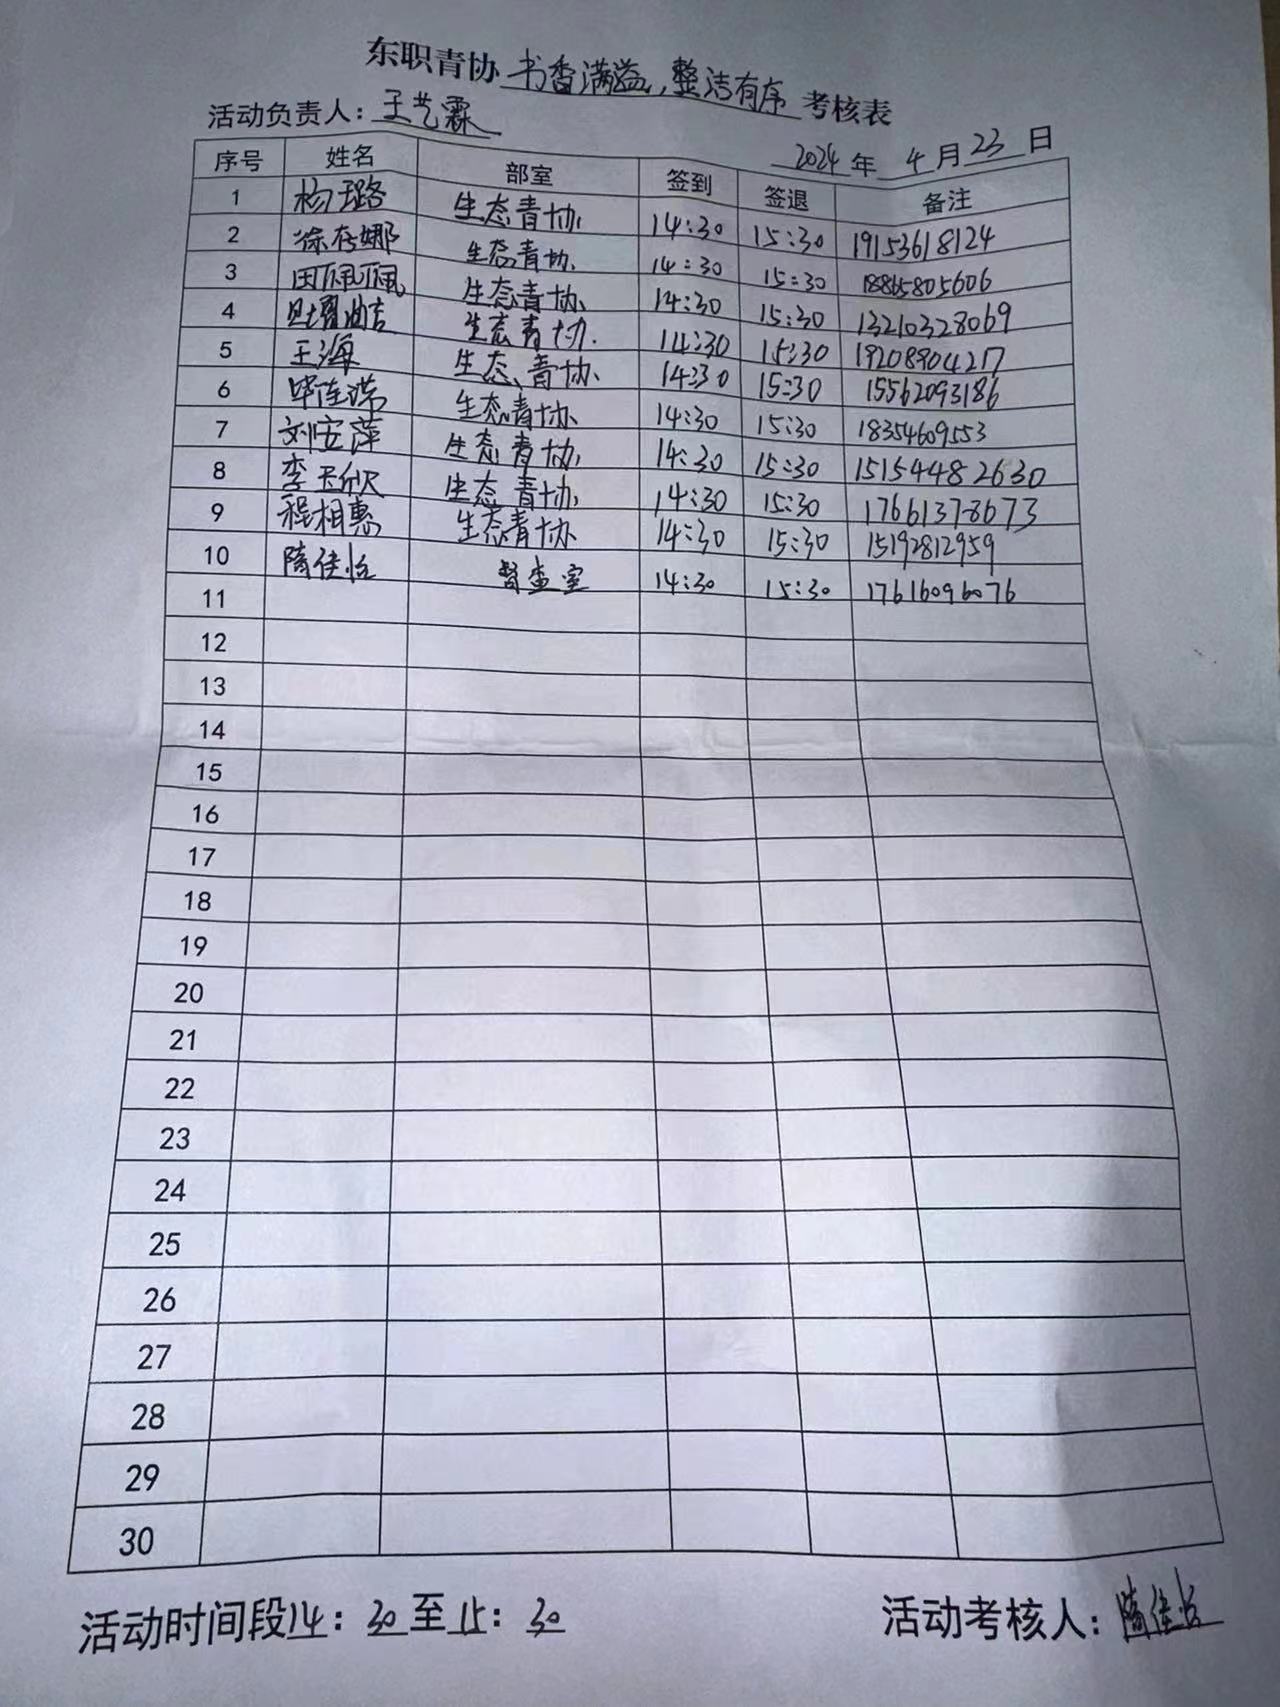 东职青协 书香满溢，整洁有序 考核表
活动负责人：王艺霖
2024 年 4 月 23 日
序号 姓名 部室 签到 签退 备注
1 杨璐 生态青协 14:30 15:30 19153618124
2 徐存娜 生态青协 14:30 15:30 18865805606
3 田佩佩 生态青协 14:30 15:30 13210328069
4 生态青协 14:30 15:30 19208904217
5 王海 生态青协 14:30 15:30 15562093186
6 毕连瑞 生态青协 14:30 15:30 18354609553
7 刘安萍 生态青协 14:30 15:30 15154482630
8 李玉欣 生态青协 14:30 15:30 17661378673
9 程相惠 生态青协 14:30 15:30 15192812959
10 隋佳怡 督查室 14:30 15:30 17616096076
11
12
13
14
15
16
17
18
19
20
21
22
23
24
25
26
27
28
29
30
活动时间段14：30至15：30
活动考核人：隋佳怡